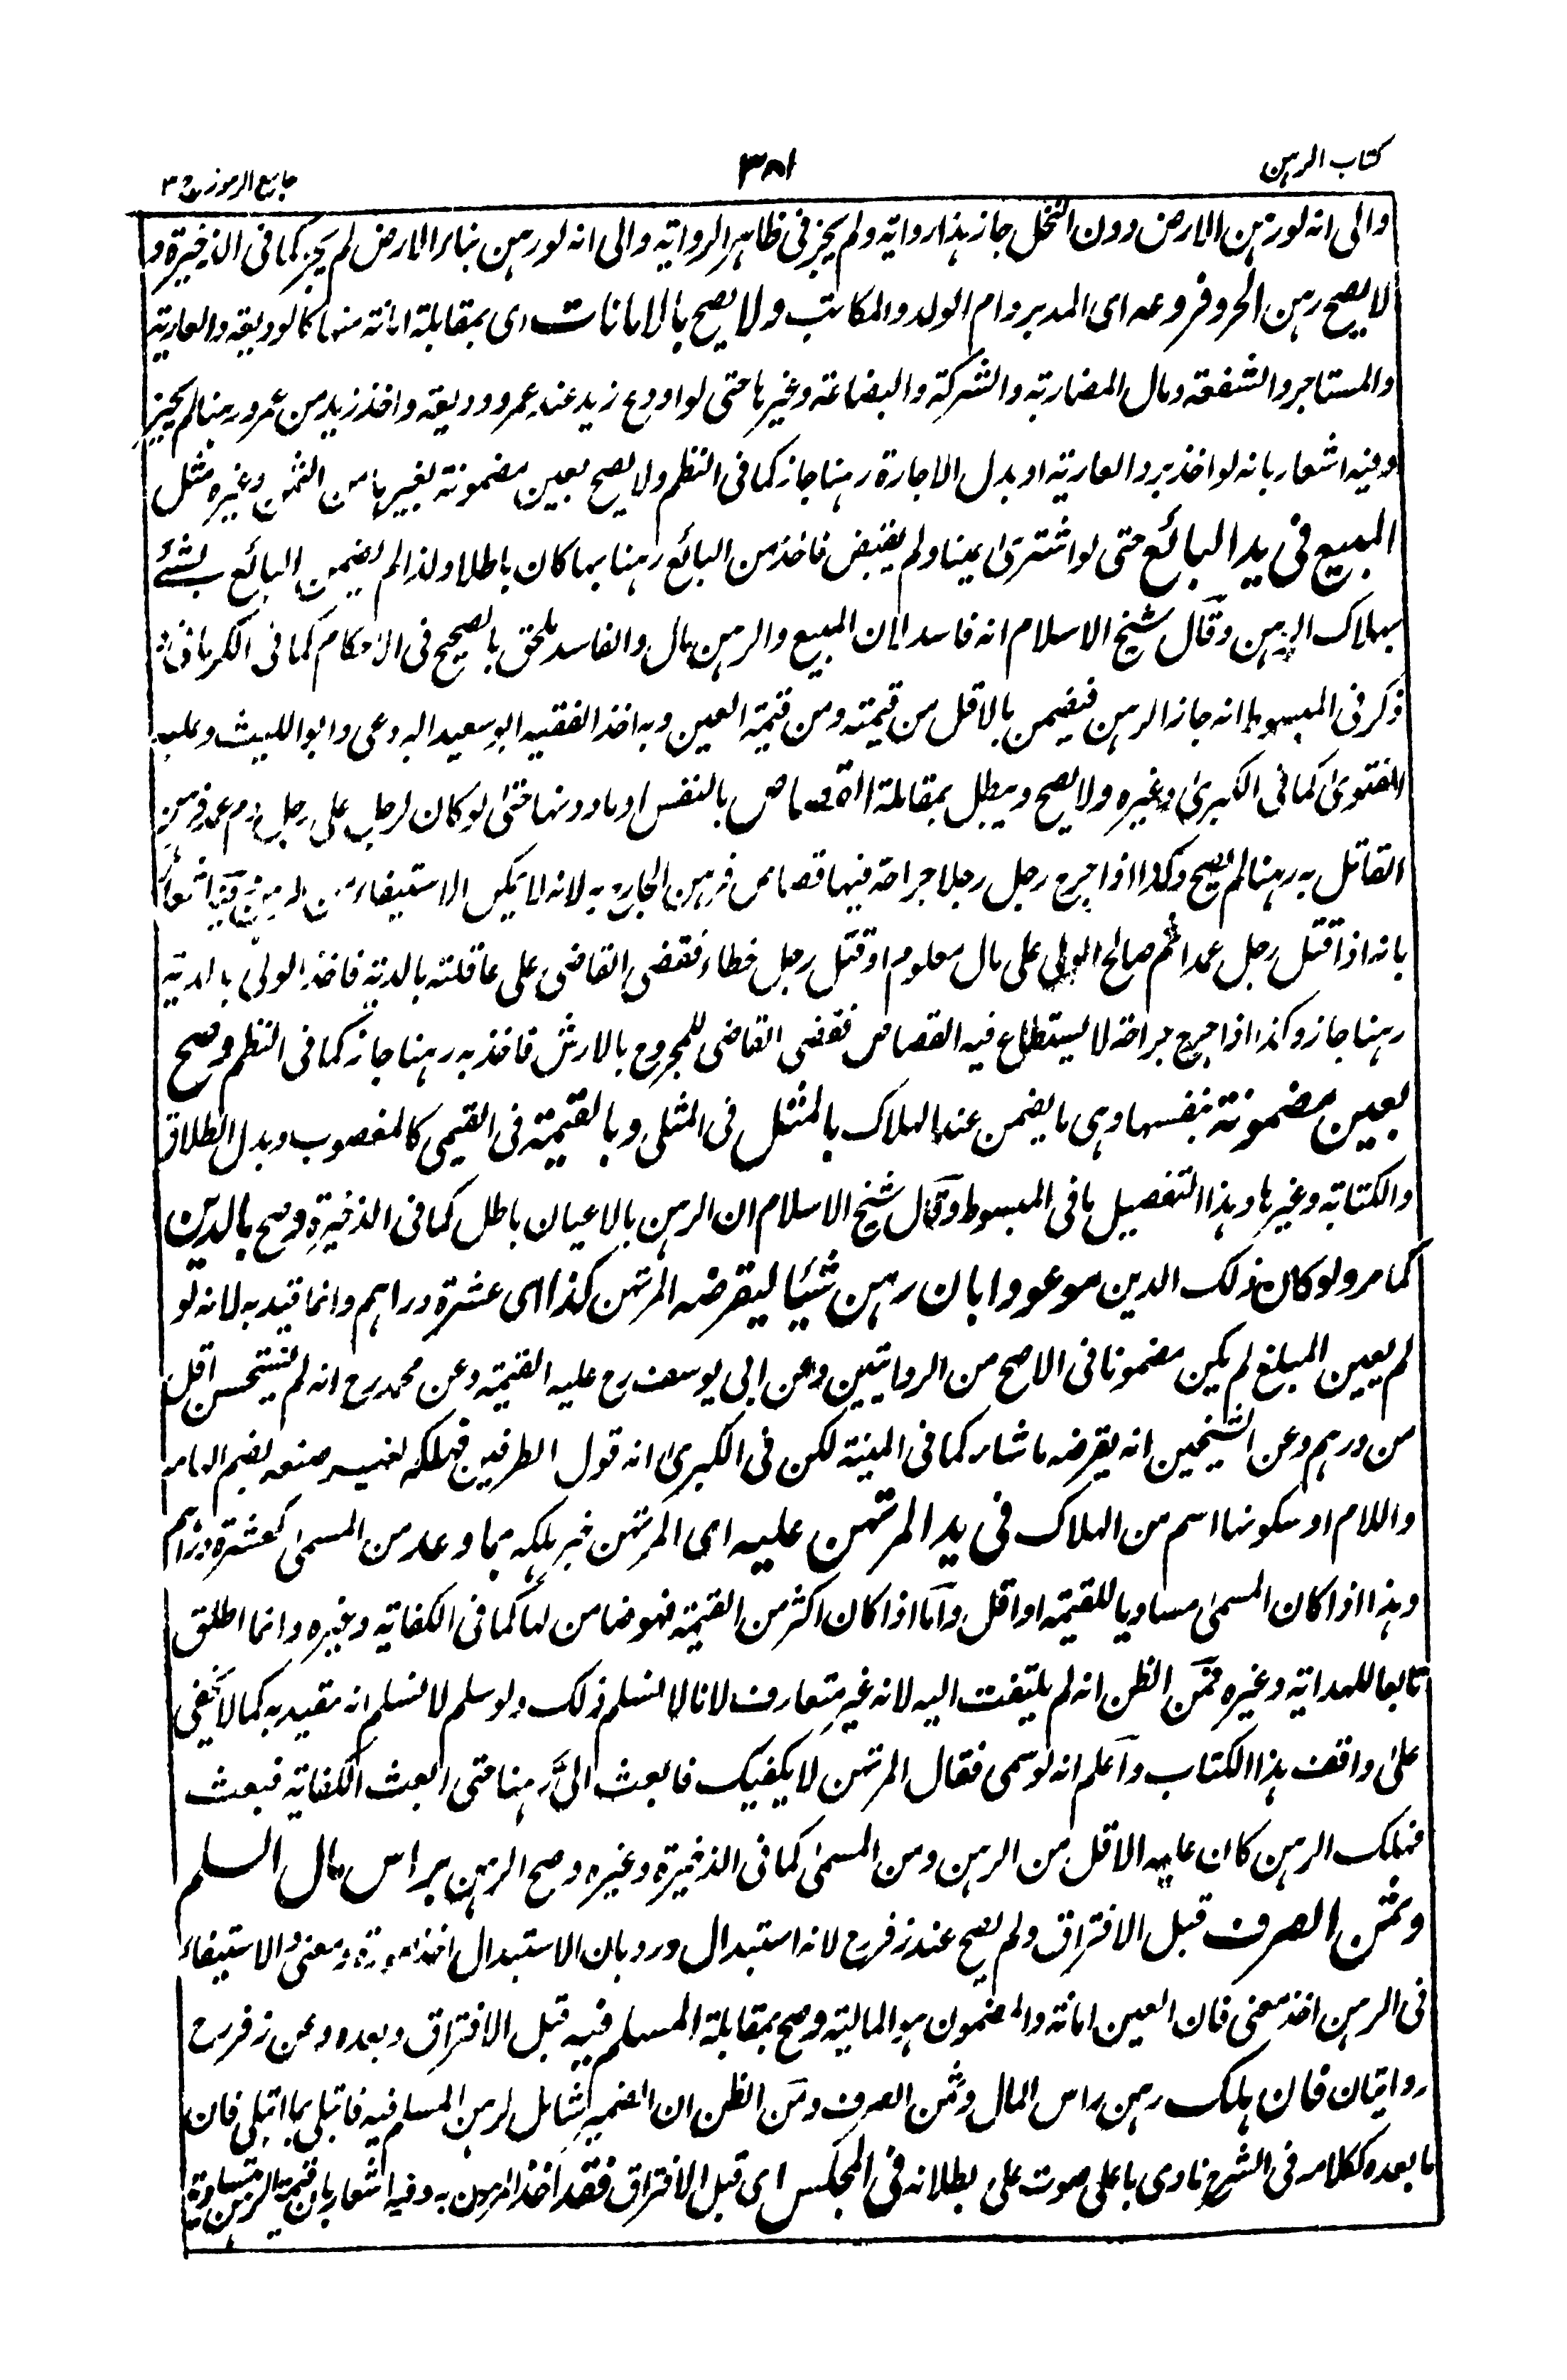 كتاب الرهن
٣٨١
جامع الرموز ج ٣
والى انه لو رهن الارض دون النخل جاز بهذا رواية ولم يجز فى ظاهر الرواية والى انه لو رهن بناء الارض لم يجز كما فى الذخيرة و
لا يصح رهن الحر وفروعه اى المدبر وام الولد والمكاتب ولا يصح بالامانات اى بمقابلة امانة منها كالوديعة والعارية
والمستاجر والشفعة ومال المضاربة والشركة والبضاعة وغيرها حتى لو اودع زيد عند عمرو وديعة واخذ زيد من عمرو رهنا لم يجز
وفيه اشعار بانه لو اخذ برد العارية او بدل الاجارة رهنا جاز كما فى النظم ولا يصح بعين مضمونة بغيرها من الثمن وغيره مثل
المبيع فى يد البائع حتى لو اشترى عينا ولم يقبض فاخذ من البائع رهنا بها كان باطلا ولذا لم يضمن البائع بشئ
بهلاك الرهن وقال شيخ الاسلام انه فاسد لان المبيع والرهن مال والفاسد ملحق بالصحيح فى الاحكام كما فى الكرمانى
ذكر فى المبسوط انه جاز الرهن فيضمن بالاقل من قيمته ومن قيمة العين وبه اخذ الفقيه ابو سعيد البردعى وابو الليث وعليه
الفتوى كما فى الكبرى وغيره ولا يصح ويبطل بمقابلة القصاص بالنفس او ما دونها حتى لو كان لرجل على رجل دم عمد فرهن
القاتل به رهنا لم يصح وكذا اذا جرح رجل رجلا جراحة فيها قصاص فرهن الجارح به لانه لا يمكن الاستيفاء من الرهن وفيه اشعار
بانه اذا قتل رجل عمدا ثم صالح الولى على مال معلوم او قتل رجل خطاء فقضى القاضى على عاقلته بالدية فاخذ الولى بالدية
رهنا جاز وكذا اذا جرح جراحة لا يستطاع فيه القصاص فقضى القاضى للمجروح بالارش فاخذ به رهنا جاز كما فى النظم وصح
بعين مضمونة بنفسها وهى ما يضمن عند الهلاك بالمثل فى المثلى وبالقيمة فى القيمى كالمغصوب وبدل الطلاق
والكتابة وغيرها وهذا التفصيل ما فى المبسوط وقال شيخ الاسلام ان الرهن بالاعيان باطل كما فى الذخيرة وصح بالدين
كما مر ولو كان ذلك الدين موعودا بان رهن شيئا ليقرضه المرتهن كذا اى عشرة دراهم وانما قيد به لانه لو
لم يعين المبلغ لم يكن مضمونا فى الاصح من الروايتين وعن ابى يوسف رح عليه القيمة وعن محمد رح انه لم نستحسن اقل
من درهم وعن الشيخين انه يقرضه ما شاء كما فى المنية لكن فى الكبرى انه قول الطرفين فهلكه لغير صنعه بضم الهاء
واللام او سكونها اسم من الهلاك فى يد المرتهن عليه اى المرتهن خبر هلكه بما وعد من المسمى كعشرة دراهم
وهذا اذا كان المسمى مساويا للقيمة او اقل واما اذا كان اكثر من القيمة فهو ضامن لها كما فى الكفاية وغيره وانما اطلق
تابعا للهداية وغيره فمن الظن انه لم يلتفت اليه لانه غير متعارف لانا لا نسلم ذلك ولو سلم لا نسلم انه مقيد به كما لا يخفى
على واقف هذا الكتاب واعلم انه لو سمى فقال المرتهن لا يكفيك فابعث الىّ رهنا حتى ابعث الكفاية فبعث
فهلك الرهن كان عليه الاقل من الرهن ومن المسمى كما فى الذخيرة وغيره وصح الرهن براس مال السلم
وثمن الصرف قبل الافتراق ولم يصح عند زفر رح لانه استبدال ورد بان الاستبدال اخذ صورة ومعنى والاستيفاء
فى الرهن اخذ معنى فان العين امانة والمضمون هو المالية وصح بمقابلة المسلم فيه قبل الافتراق وبعده وعن زفر رح
روايتان فان هلك رهن راس المال وثمن الصرف ومن الظن ان الضمير شامل لرهن المسلم فيه فابتلى بما ابتلى فان
ما بعده ككلامه فى الشرح نادى باعلى صوت على بطلانه فى المجلس اى قبل الافتراق فقد اخذ المرهون به وفيه اشعار بان قيمة الرهن متساوية